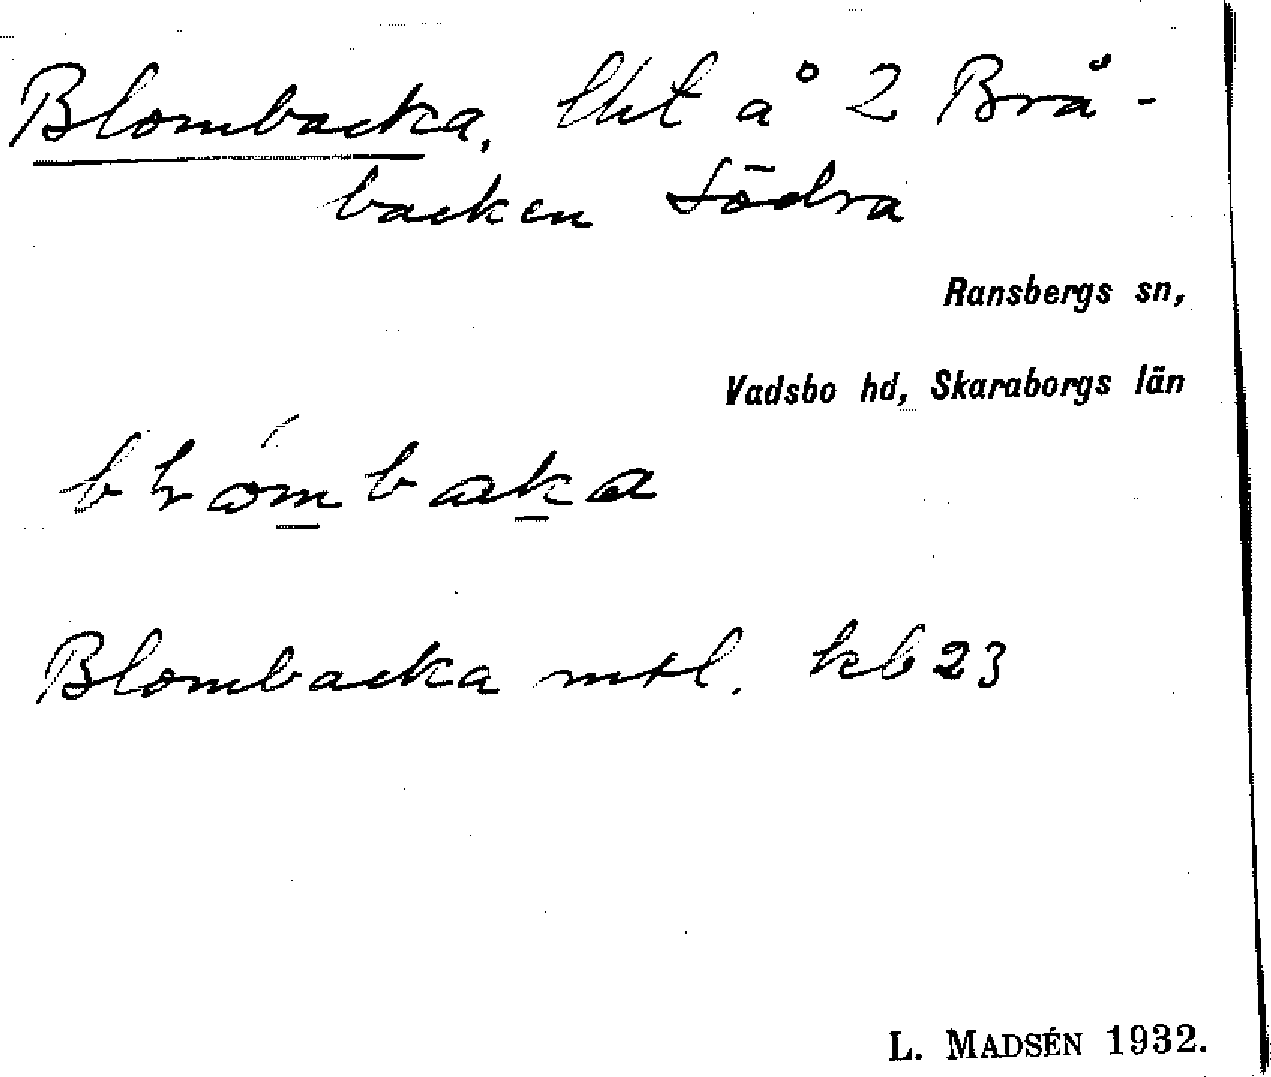 Blombacka, lht å 2 Brå-
backen Södra
Ransbergs sn,
Vadsbo hd, Skaraborgs län
Blombacka mtl. kb 23
L. MADSÉN 1932.